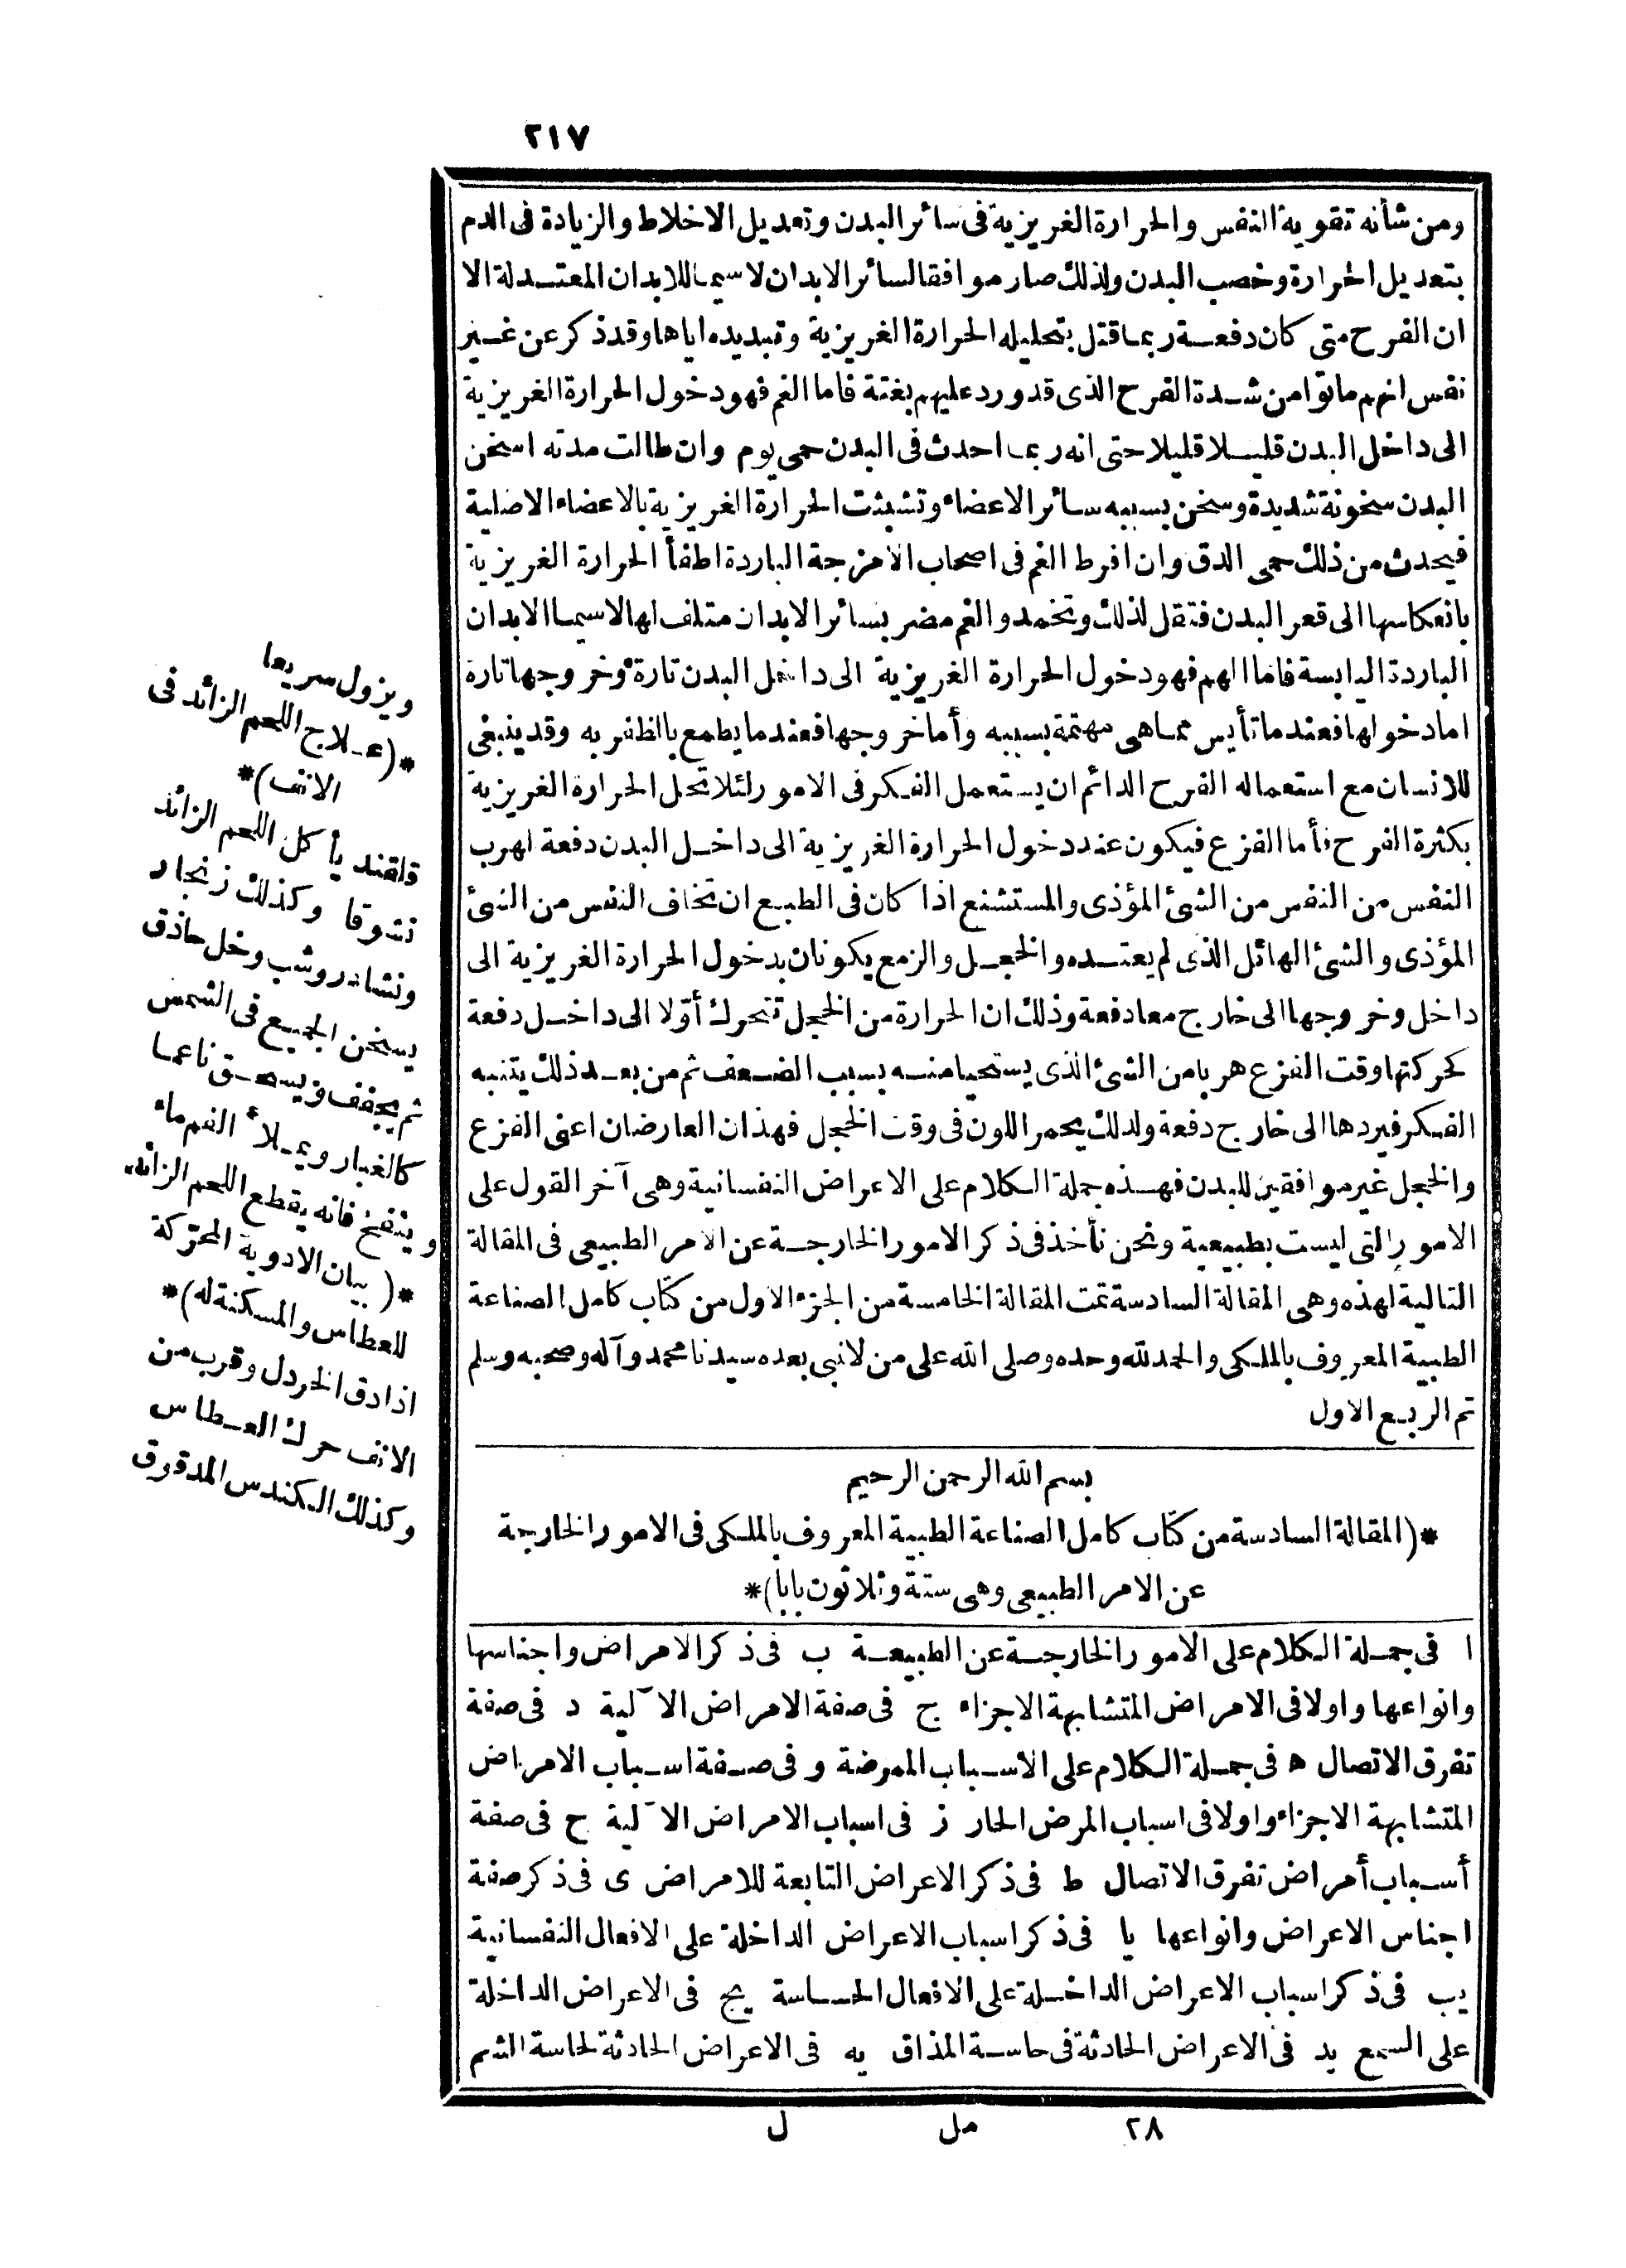 ٢١٧
ومن شأنه تقوية النفس والحرارة الغريزية فى سائر البدن وتعديل الاخلاط والزيادة فى الدم
بتعديل الحرارة وخصب البدن ولذلك صار موافقا لسائر الابدان لاسيما للابدان المعتدلة الا
ان الفرح متى كان دفعة ربما قتل بتحليله الحرارة الغريزية وتبديده اياها وقد ذكر عن غير
نفس انهم ماتوا من شدة الفرح الذى قد ورد عليهم بغتة فاما الغم فهو دخول الحرارة الغريزية
الى داخل البدن قليلا قليلا حتى انه ربما احدث فى البدن حمى يوم وان طالت مدته اسخن
البدن سخونة شديدة وسخن بسببه سائر الاعضاء وتشبثت الحرارة الغريزية بالاعضاء الاصلية
فيحدث من ذلك حمى الدق وان افرط الغم فى اصحاب الامزجة الباردة اطفأ الحرارة الغريزية
بانعكاسها الى قعر البدن فتقل لذلك وتخمد والغم مضر بسائر الابدان متلف لها لاسيما الابدان
الباردة اليابسة فاما الهم فهو دخول الحرارة الغريزية الى داخل البدن تارة وخروجها تارة
اما دخولها فعند ما تأيس مما هى مهتمة بسببه وأما خروجها فعند ما يطمع بالظفر به وقد ينبغى
للانسان مع استعماله الفرح الدائم ان يستعمل الفكر فى الامور لئلا تحل الحرارة الغريزية
بكثرة الفرح فأما الفزع فيكون عند دخول الحرارة الغريزية الى داخل البدن دفعة لهرب
النفس من النفس من الشئ المؤذى والمستشنع اذا كان فى الطبع ان تخاف النفس من الشئ
المؤذى والشئ الهائل الذى لم يعتده والخجل والزمع يكونان بدخول الحرارة الغريزية الى
داخل وخروجها الى خارج معا دفعة وذلك ان الحرارة من الخجل تتحرك أوّلا الى داخل دفعة
كحركتها وقت الفزع هربا من الشئ الذى يستحيا منه بسبب الضعف ثم من بعد ذلك يتنبه
الفكر فيردها الى خارج دفعة ولذلك يحمر اللون فى وقت الخجل فهذان العارضان اعنى الفزع
والخجل غير موافقين للبدن فهذه جملة الكلام على الاعراض النفسانية وهى آخر القول على
الامور التى ليست بطبيعية ونحن نأخذ فى ذكر الامور الخارجة عن الامر الطبيعى فى المقالة
التالية لهذه وهى المقالة السادسة تمت المقالة الخامسة من الجزء الاول من كتاب كامل الصناعة
الطبية المعروف بالملكى والحمد لله وحده وصلى الله على من لا نبى بعده سيدنا محمد وآله وصحبه وسلم
تم الربع الاول
بسم الله الرحمن الرحيم
*(المقالة السادسة من كتاب كامل الصناعة الطبية المعروف بالملكى فى الامور الخارجة
عن الامر الطبيعى وهى ستة وثلاثون بابا)*
ا فى جملة الكلام على الامور الخارجة عن الطبيعة ب فى ذكر الامراض واجناسها
وانواعها واولا فى الامراض المتشابهة الاجزاء ج فى صفة الامراض الآلية د فى صفة
تفرق الاتصال ه فى جملة الكلام على الاسباب الممرضة و فى صفة اسباب الامراض
المتشابهة الاجزاء واولا فى اسباب المرض الحار ز فى اسباب الامراض الآلية ح فى صفة
أسباب أمراض تفرق الاتصال ط فى ذكر الاعراض التابعة للامراض ى فى ذكر صفة
اجناس الاعراض وانواعها يا فى ذكر اسباب الاعراض الداخلة على الافعال النفسانية
يب فى ذكر اسباب الاعراض الداخلة على الافعال الحساسة يج فى الاعراض الداخلة
على السمع يد فى الاعراض الحادثة فى حاسة المذاق يه فى الاعراض الحادثة لحاسة الشم
٢٨ مل ل
ويزول سريعا
*(علاج اللحم الزائد فى
الانف)*
قلقند يأكل اللحم الزائد
نشوقا وكذلك زنجار
ونشادر وشب وخل حاذق
يسخن الجميع فى الشمس
ثم يجفف ويسحق ناعما
كالغبار ويملأ الفم ماء
وينفخ فانه يقطع اللحم الزائد
*(بيان الادوية المحرّكة
للعطاس والمسكنة له)*
اذا دق الخردل وقرب من
الانف حرك العطاس
وكذلك الكندس المدقوق